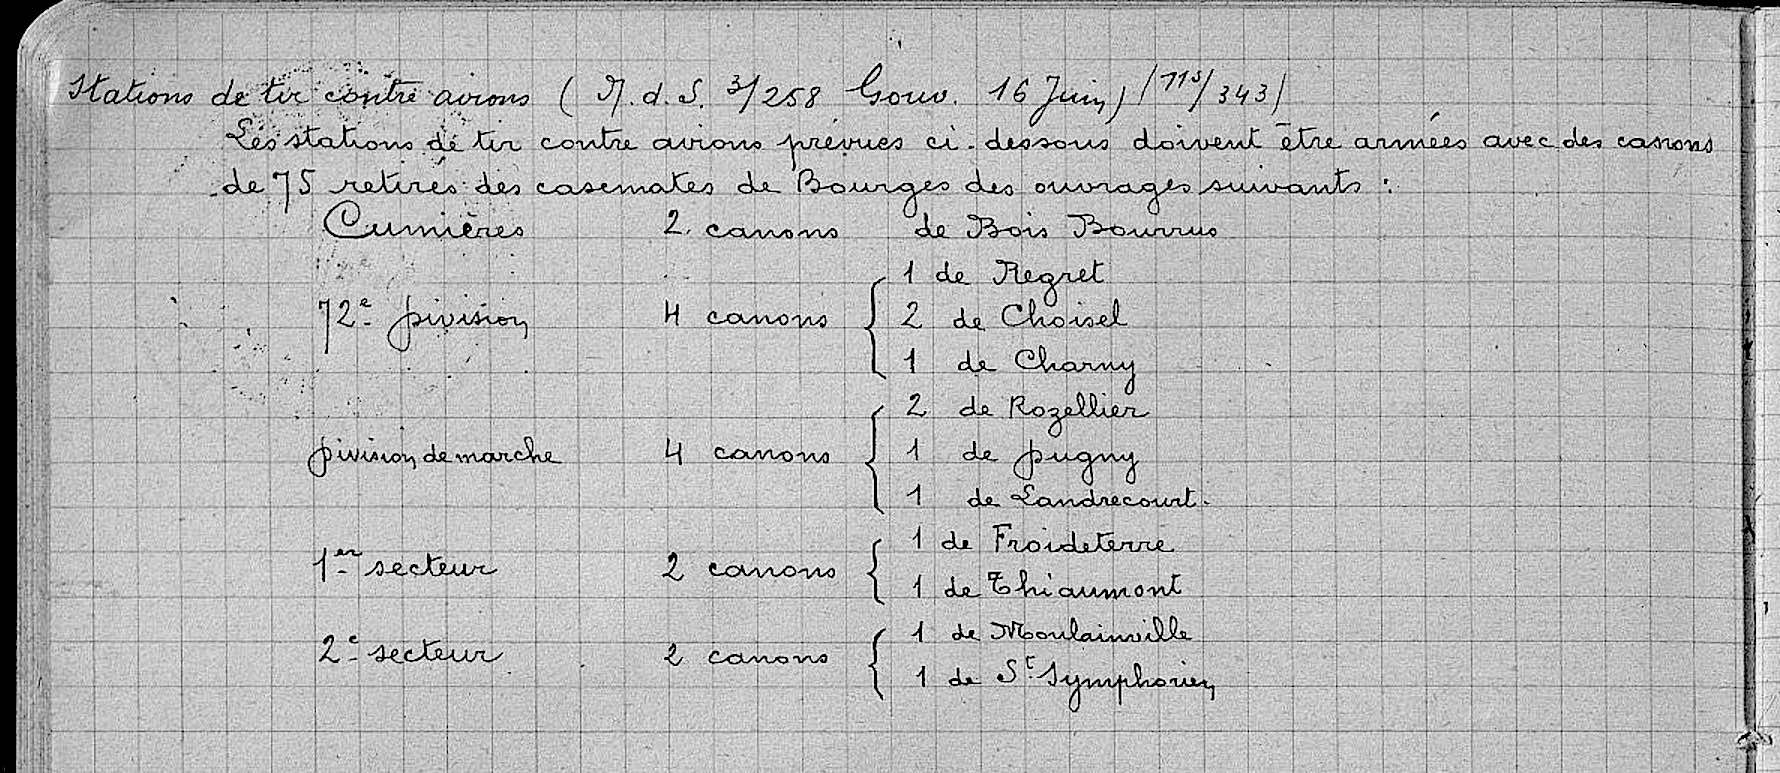 Stations de tir contre avions (N.d.S. 3/258 Gouv. 16 Juin) (113/343)
Les stations de tir contre avions prévues ci-dessous doivent être armées avec des canons
de 75 retirés des casemates de Bourges des ouvrages suivants :
Cumières 2 canons de Bois Bourrus
72e Division 4 canons { 1 de Regret
2 de Choisel
1 de Charny
Division de marche 4 canons { 2 de Rozellier
1 de Dugny
1 de Landrecourt.
1er secteur 2 canons { 1 de Froideterre
1 de Thiaumont
2e secteur 2 canons { 1 de Moulainville
1 de St Symphorien